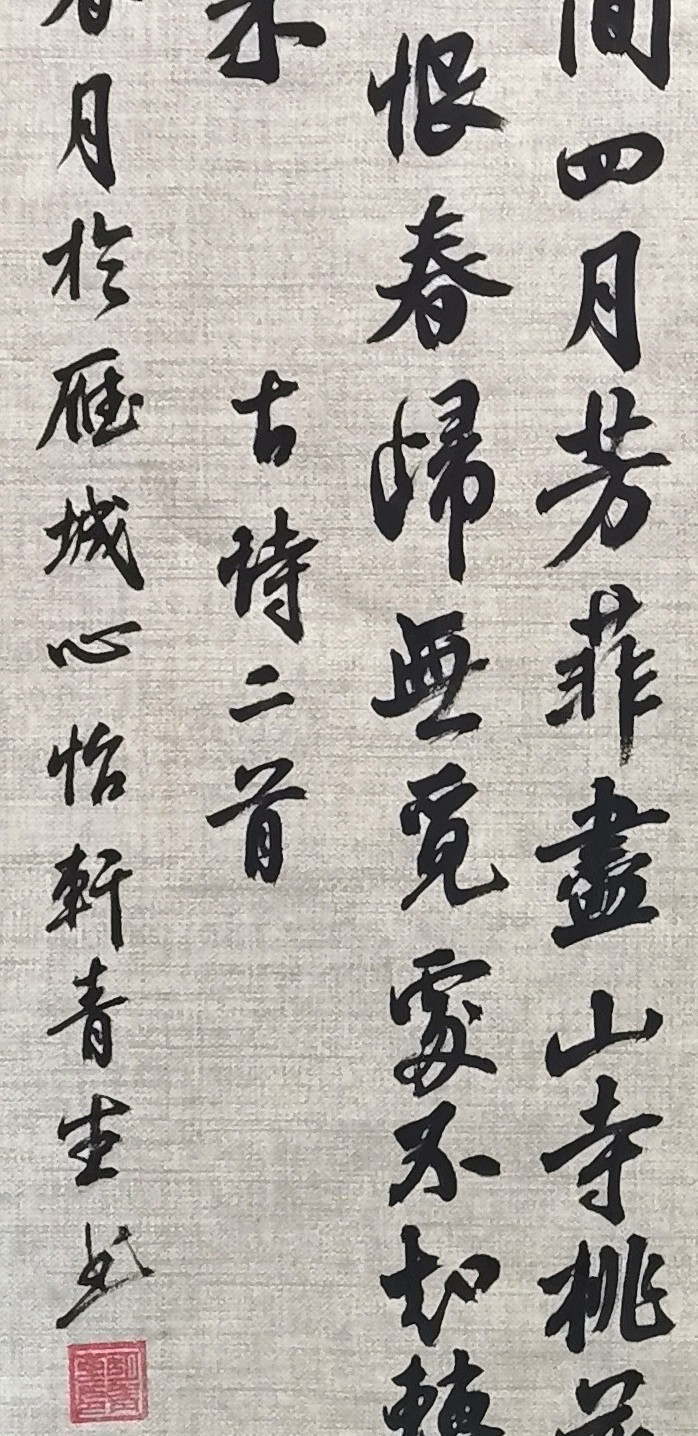 間四月芳菲盡山寺桃花
恨春歸無覓處不知轉
來
古詩二首
春月於雁城心怡軒青生書